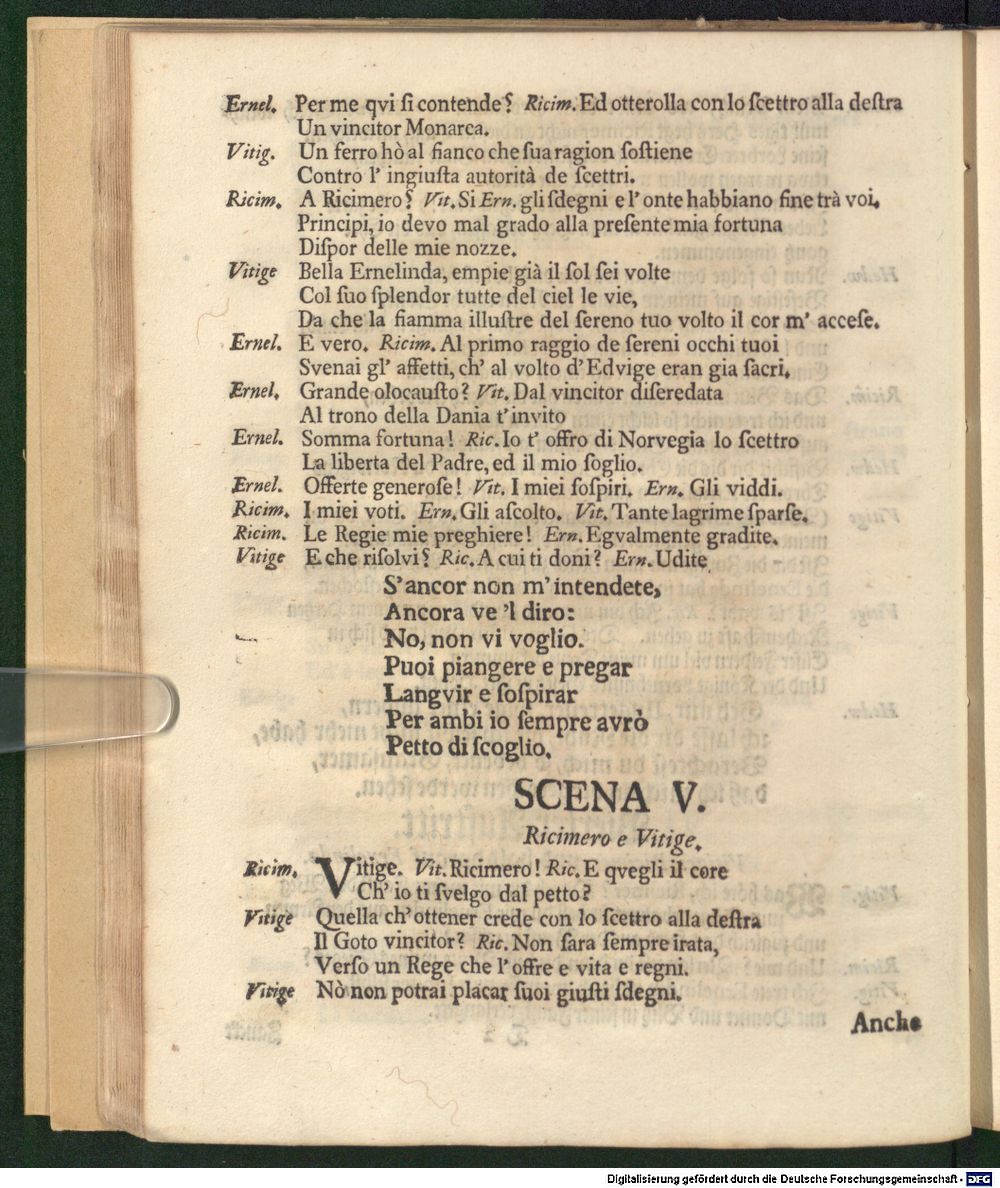 Ernel. Per me qvi ſi contende? Ricim. Ed otterolla con lo ſcettro alla deſtra
Un vincitor Monarca.
Vitig. Un ferro hò al fianco che ſua ragion ſoſtiene
Contro l' ingiuſta autorità de ſcettri.
Ricim. A Ricimero? Vit. Si Ern. gli ſdegni e l' onte habbiano fine trà voi.
Principi, io devo mal grado alla preſente mia fortuna
Diſpor delle mie nozze.
Vitige Bella Ernelinda, empie già il ſol ſei volte
Col ſuo ſplendor tutte del ciel le vie,
Da che la fiamma illuſtre del ſereno tuo volto il cor m' acceſe.
Ernel. E vero. Ricim. Al primo raggio de ſereni occhi tuoi
Svenai gl' affetti, ch' al volto d' Edvige eran gia ſacri.
Ernel. Grande olocauſto? Vit. Dal vincitor diſeredata
Al trono della Dania t' invito
Ernel. Somma fortuna! Ric. Io t' offro di Norvegia lo ſcettro
La liberta del Padre, ed il mio ſoglio.
Ernel. Offerte generoſe! Vit. I miei ſoſpiri. Ern. Gli viddi.
Ricim. I miei voti. Ern. Gli aſcolto. Vit. Tante lagrime ſparſe.
Ricim. Le Regie mie preghiere! Ern. Egvalmente gradite.
Vitige E che riſolvi? Ric. A cui ti doni? Ern. Udite
S' ancor non m' intendete,
Ancora ve 'l diro:
No, non vi voglio.
Puoi piangere e pregar
Langvir e ſoſpirar
Per ambi io ſempre avrò
Petto di ſcoglio.
SCENA V.
Ricimero e Vitige.
Ricim. Vitige. Vit. Ricimero! Ric. E qvegli il core
Ch' io ti ſvelgo dal petto?
Vitige Quella ch' ottener crede con lo ſcettro alla deſtra
Il Goto vincitor? Ric. Non ſara ſempre irata,
Verſo un Rege che l' offre e vita e regni.
Vitige Nò non potrai placar ſuoi giuſti ſdegni.
Anche
Digitalisierung gefördert durch die Deutsche Forschungsgemeinschaft - DFG